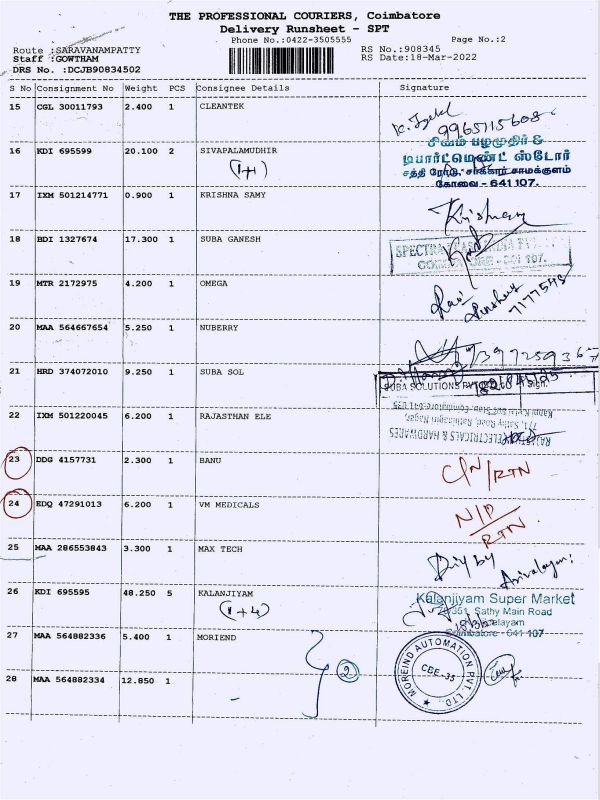 THE PROFESSIONAL COURIERS, Coimbatore
Delivery Runsheet - SPT
Phone No.:0422-3505555 Page No.:2
Route :SARAVANAMPATTY RS No.:908345
Staff :GOWTHAM RS Date:18-Mar-2022
DRS No. :DCJB90834502
S No Consignment No Weight PCS Consignee Details Signature
15 CGL 30011793 2.400 1 CLEANTEK
9965115608
16 KDI 695599 20.100 2 SIVAPALAMUDHIR
(1+1)
சிவம் பழமுதிர் &
டிபார்ட்மெண்ட் ஸ்டோர்
சத்தி ரோடு, சர்க்கார் சாமக்குளம்
கோவை - 641 107.
17 IXM 501214771 0.900 1 KRISHNA SAMY
18 BDI 1327674 17.300 1 SUBA GANESH
SPECTRA
19 MTR 2172975 4.200 1 OMEGA
Ravi
7177548
20 MAA 564667654 5.250 1 NUBERRY
21 HRD 374072010 9.250 1 SUBA SOL
SUBA SOLUTIONS PVT Sign.
22 IXM 501220045 6.200 1 RAJASTHAN ELE
ELECTRICALS & HARDWARES
771, Sathy Road, Rathinagiri Nagar,
Coimbatore-641 035
23 DDG 4157731 2.300 1 BANU
C/N/RTN
24 EDQ 47291013 6.200 1 VM MEDICALS
N/P/
RTN
25 MAA 286553843 3.300 1 MAX TECH
26 KDI 695595 48.250 5 KALANJIYAM
(1+4)
Kalanjiyam Super Market
351, Sathy Main Road
Coimbatore - 641 107
27 MAA 564882336 5.400 1 MORIEND
2
MOREIND AUTOMATION PVT. LTD.
CBE-35
28 MAA 564882334 12.850 1